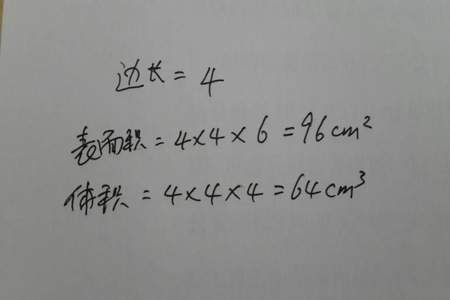 边长 = 4
表面积 = 4×4×6 = 96cm²
体积 = 4×4×4 = 64cm³